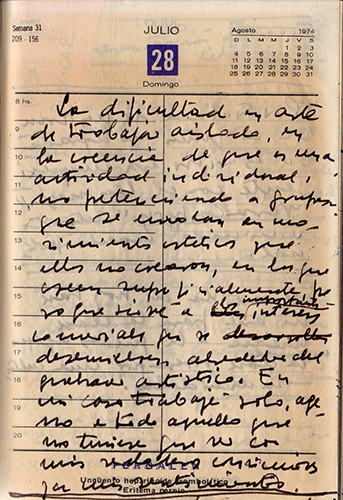 Semana 31
209 - 156
JULIO
28
Domingo
Agosto 1974
D L M M J V S
1 2 3
4 5 6 7 8 9 10
11 12 13 14 15 16 17
18 19 20 21 22 23 24
25 26 27 28 29 30 31
8 hs.
La dificultad en arte
9
de trabajar aislado, en
10
la creencia de que es una
11
actividad individual,
12
no perteneciendo a grupos
que se enrolan en mo-
13
vimientos estéticos que
14
ellos no crearon, en los que
15
creen superficialmente,
importantes
16
que sirve a intereses
comerciales que se
17
desenvuelven alrededor del
18
artístico. En
19
mi caso trabajé solo, aje-
no a todo aquello que
20
no tuviese que ver con
mis convicciones
Ungüento heparinoide trombolítico
Eritema pernio